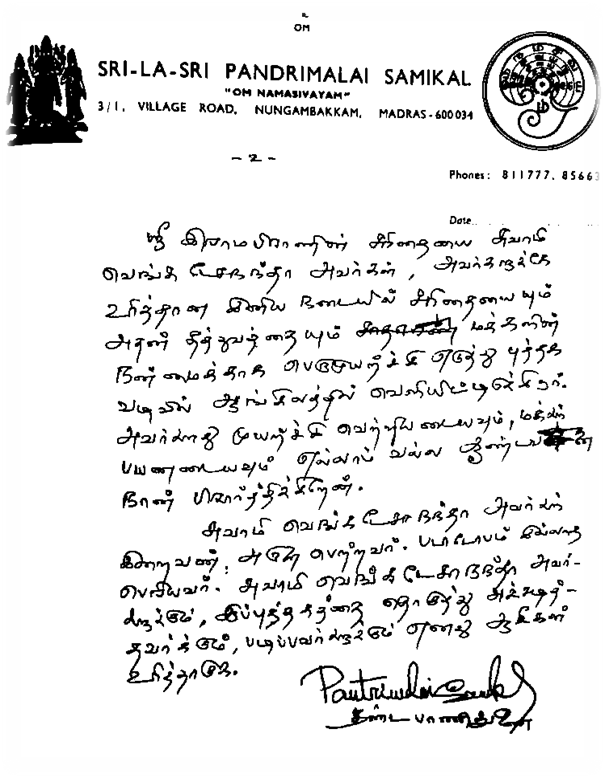 உ
OM
SRI-LA-SRI PANDRIMALAI SAMIKAL
"OM NAMASIVAYAM"
3/1, VILLAGE ROAD, NUNGAMBAKKAM, MADRAS-600034
- 2 -
Phones: 811777, 85663
Date
ஸ்ரீ இராமபிரானின் சரிதையை சுவாமி
வெங்கடேசாநந்தா அவர்கள், அவர்களுக்கே
உரித்தான இனிய நடையில் சரிதையையும்
அதன் தத்துவத்தையும் மக்களின்
நன்மைக்காக பெருமுயற்சி எடுத்து புத்தக
வடிவில் ஆங்கிலத்தில் வெளியிட்டிருக்கிறார்.
அவர்களது முயற்சி வெற்றியடையவும், மக்கள்
பயனடையவும் எல்லாம் வல்ல
நான் பிரார்த்திக்கிறேன்.
சுவாமி வெங்கடேசாநந்தா அவர்கள்
இறைவன் அருள் பெற்றவர். படாடோபம் இல்லாத
பெரியவர். சுவாமி வெங்கடேசாநந்தா அவர்-
களுக்கும், இப்புத்தகத்தை தொகுத்து அச்சடித்-
தவர்க்கும், படிப்பவர்களுக்கும் எனது ஆசிகள்
உரித்தாகுக.